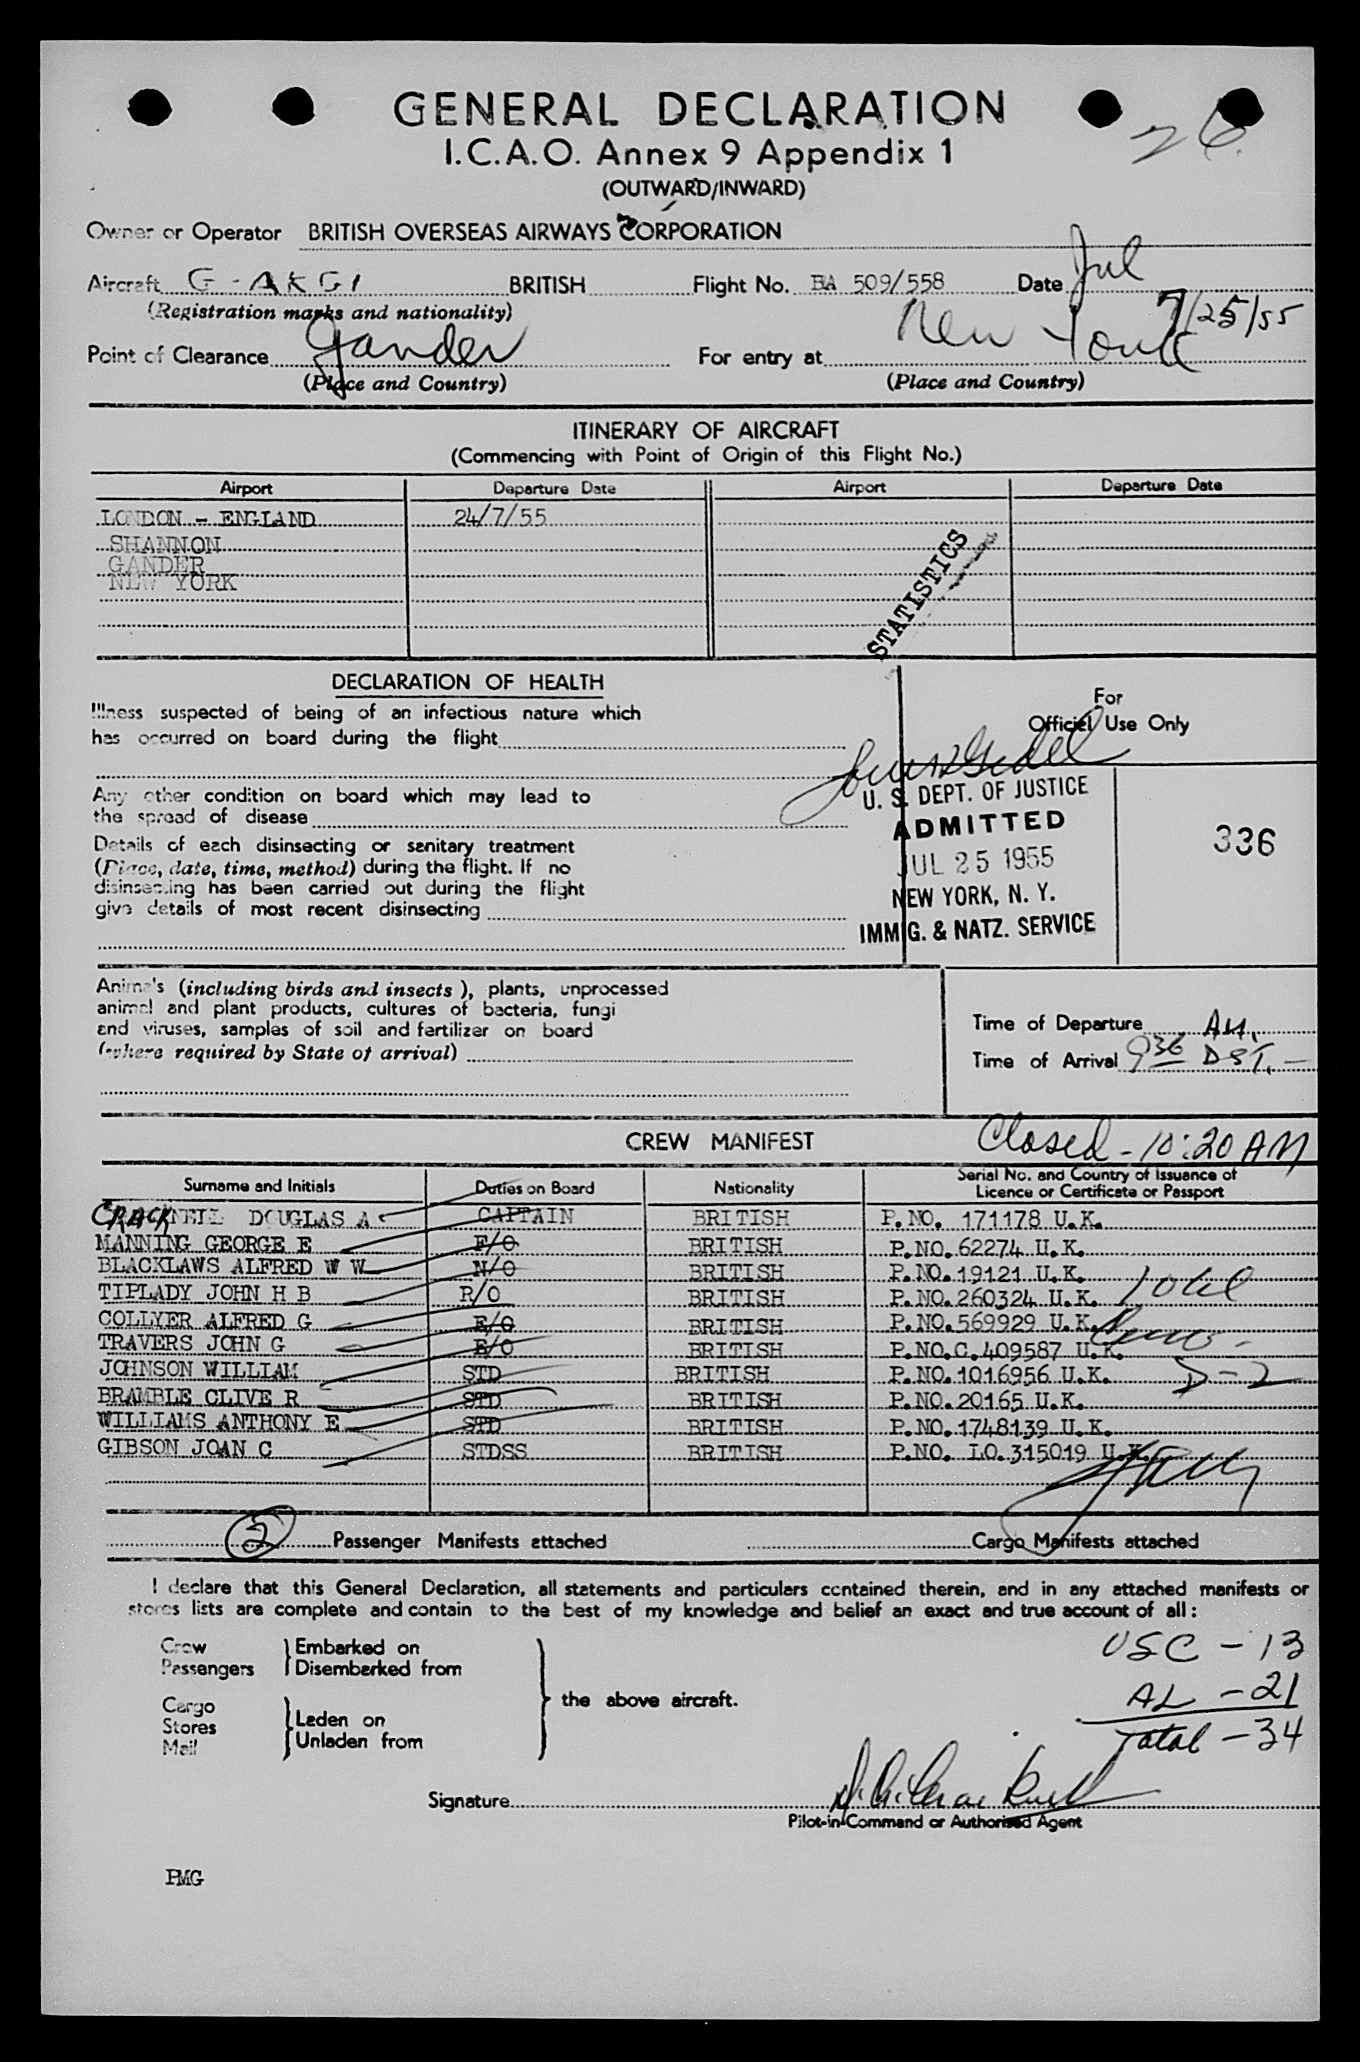 GENERAL DECLARATION
26
I.C.A.O. Annex 9 Appendix 1
(OUTWARD/INWARD)
Owner or Operator BRITISH OVERSEAS AIRWAYS CORPORATION
Aircraft G-AKGI BRITISH Flight No. BA 509/558 Date Jul
(Registration marks and nationality) 7/25/55
Point of Clearance Gander For entry at New York
(Place and Country) (Place and Country)
ITINERARY OF AIRCRAFT
(Commencing with Point of Origin of this Flight No.)
Airport Departure Date Airport Departure Date
LONDON - ENGLAND 24/7/55
SHANNON
GANDER
NEW YORK
STATISTICS
DECLARATION OF HEALTH
For
Official Use Only
Illness suspected of being of an infectious nature which
has occurred on board during the flight
Any other condition on board which may lead to
the spread of disease
U. S. DEPT. OF JUSTICE
ADMITTED
JUL 25 1955
NEW YORK, N. Y.
IMMIG. & NATZ. SERVICE
336
Details of each disinsecting or sanitary treatment
(Place, date, time, method) during the flight. If no
disinsecting has been carried out during the flight
give details of most recent disinsecting
Animals (including birds and insects), plants, unprocessed
animal and plant products, cultures of bacteria, fungi
and viruses, samples of soil and fertilizer on board
(where required by State of arrival)
Time of Departure AM.
Time of Arrival 9 36 DST. -
CREW MANIFEST Closed - 10:20 AM
Surname and Initials Duties on Board Nationality Serial No. and Country of Issuance of
Licence or Certificate or Passport
CRACKNELL DOUGLAS A CAPTAIN BRITISH P.NO. 171178 U.K.
MANNING GEORGE E F/O BRITISH P.NO.62274 U.K.
BLACKLAWS ALFRED W W N/O BRITISH P.NO.19121 U.K.
TIPLADY JOHN H B R/O BRITISH P.NO.260324 U.K. Total
COLLYER ALFRED G E/O BRITISH P.NO.569929 U.K.
TRAVERS JOHN G E/O BRITISH P.NO.C.409587 U.K.
JOHNSON WILLIAM STD BRITISH P.NO.1016956 U.K. D-2
BRAMBLE CLIVE R STD BRITISH P.NO.20165 U.K.
WILLIAMS ANTHONY E STD BRITISH P.NO.1748139 U.K.
GIBSON JOAN C STDSS BRITISH P.NO. LO.315019 U.K.
2 Passenger Manifests attached Cargo Manifests attached
I declare that this General Declaration, all statements and particulars contained therein, and in any attached manifests or
stores lists are complete and contain to the best of my knowledge and belief an exact and true account of all:
Crew Embarked on
Passengers Disembarked from
the above aircraft.
Cargo
Stores Laden on
Mail Unladen from
USC - 13
AL - 21
Total - 34
Signature
Pilot-in-Command or Authorised Agent
PMG